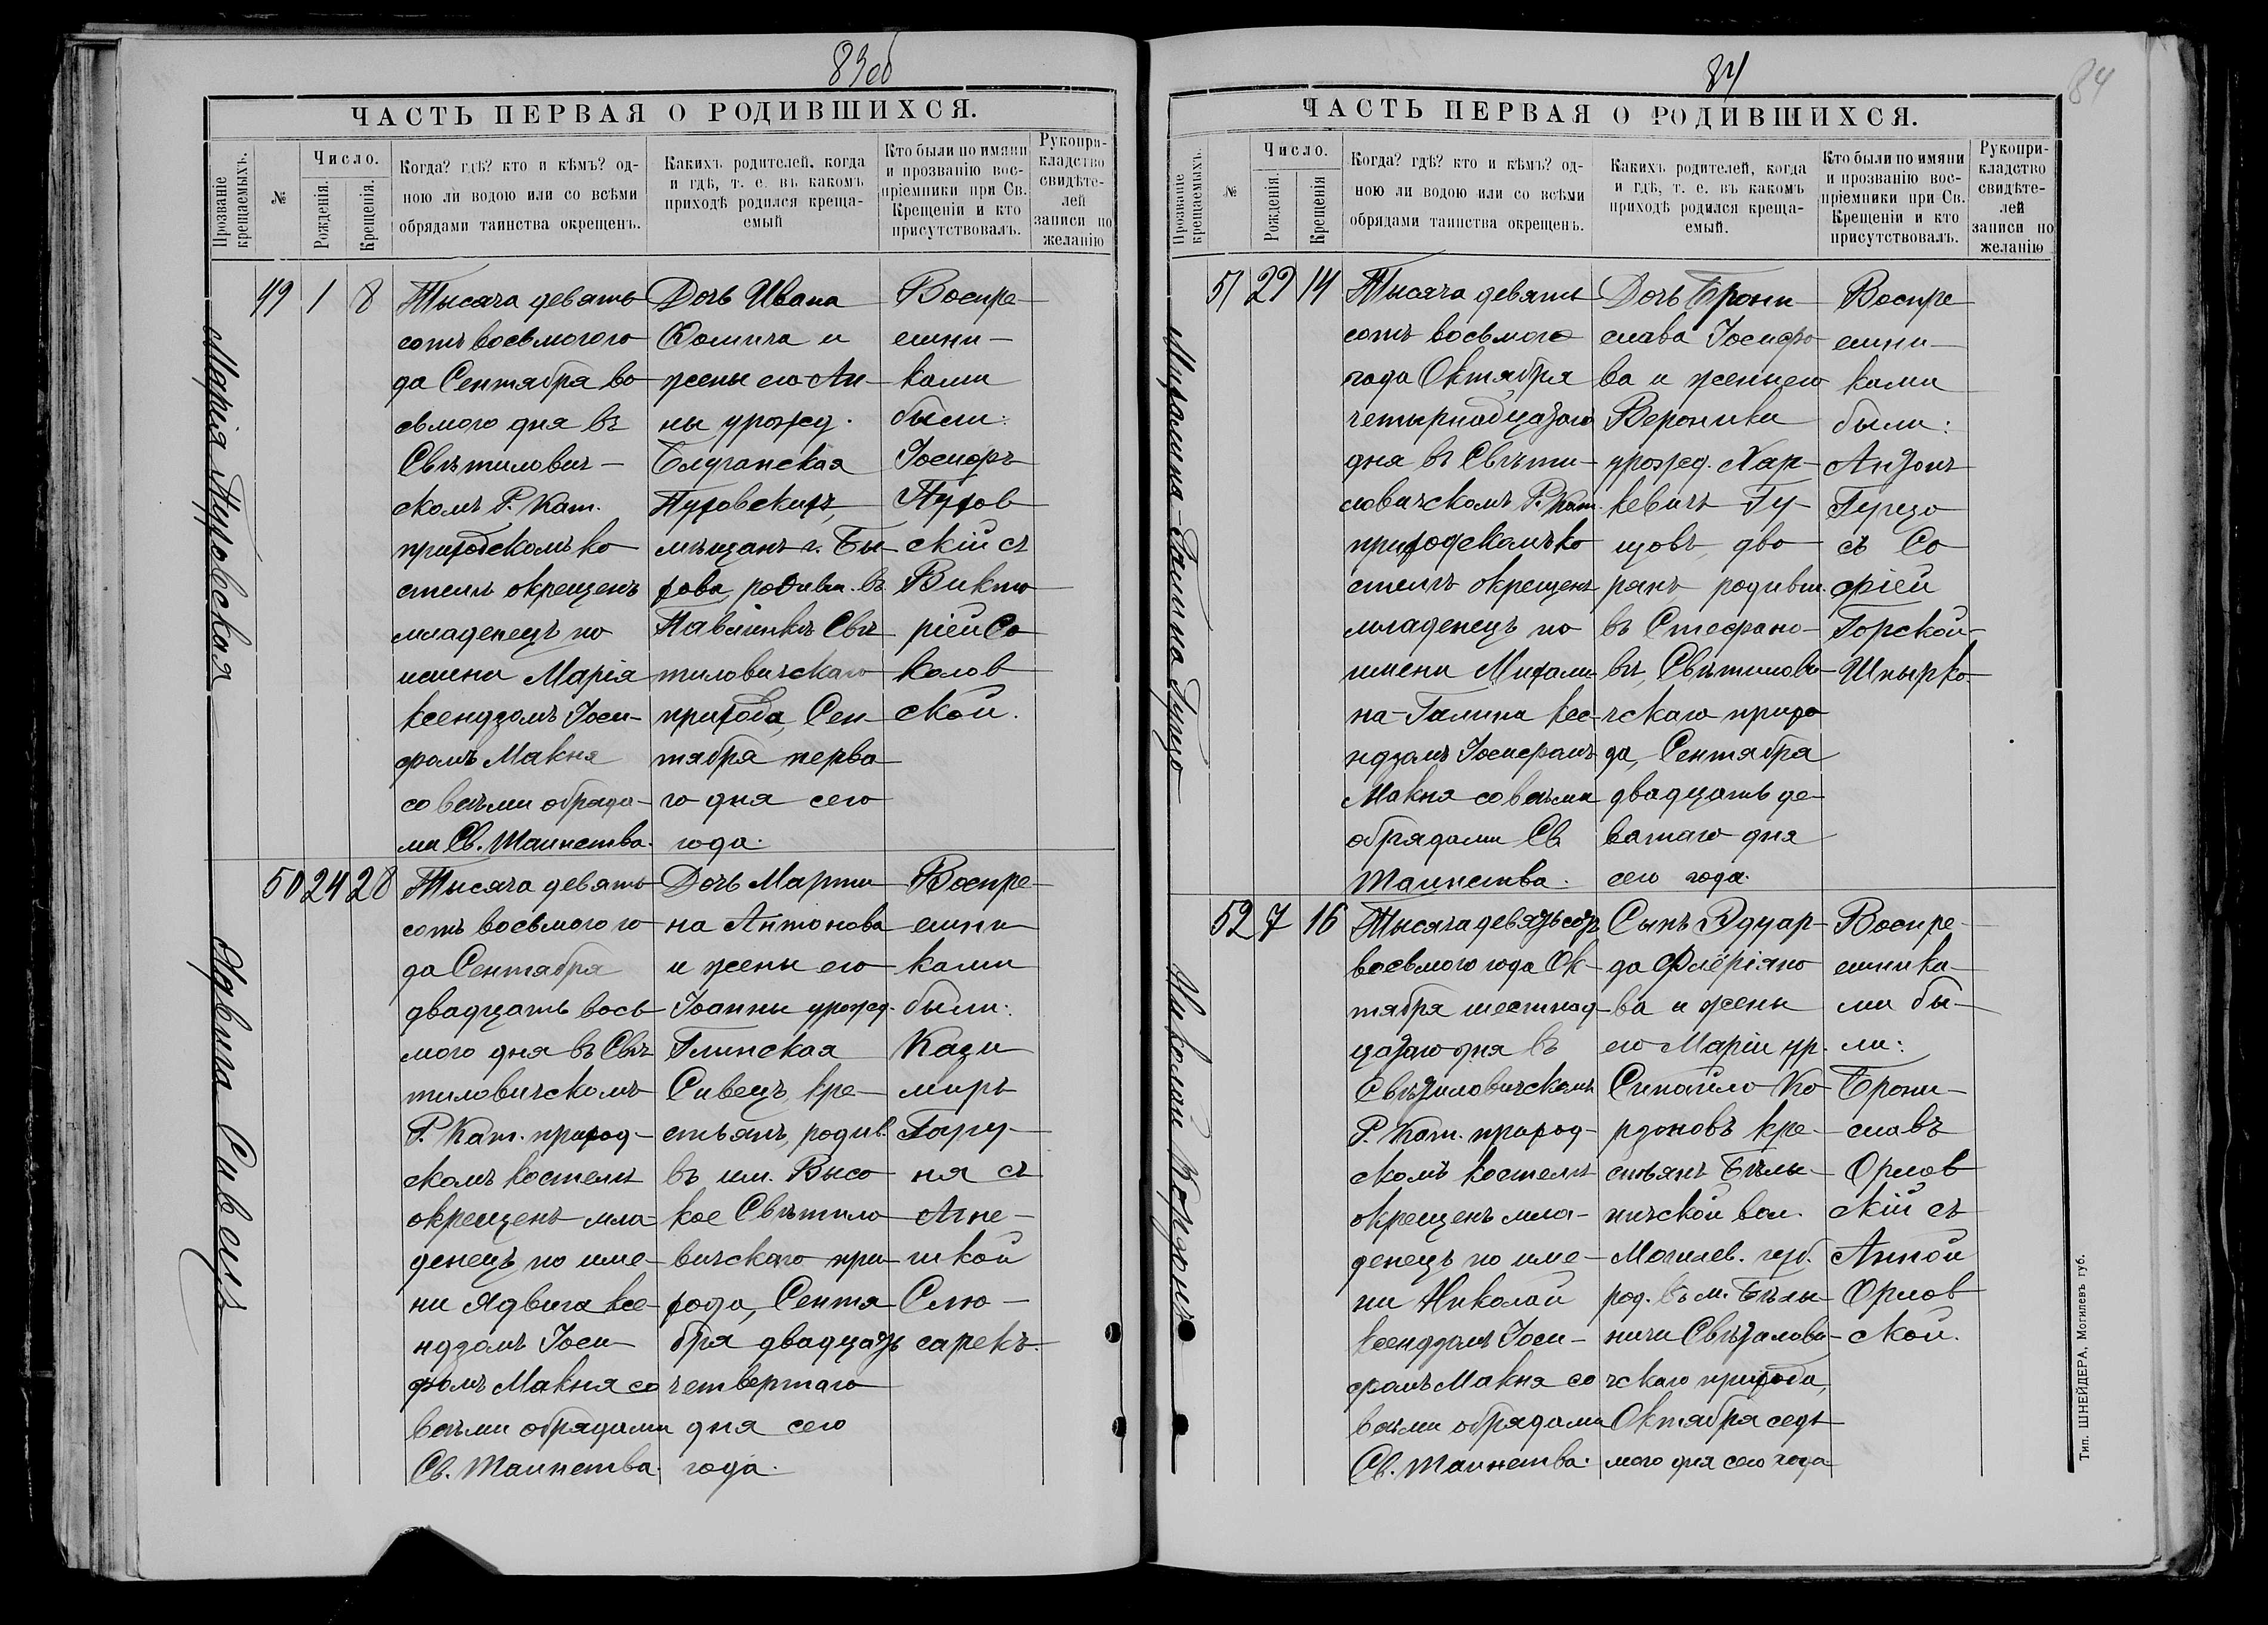 83об
ЧАСТЬ ПЕРВАЯ О РОДИВШИХСЯ.
Прозваніе крещаемыхъ.
№
Число.
Рожденія.
Крещенія.
Когда? гдѣ? кто и кѣмъ? од-
ною ли водою или со всѣми
обрядами таинства окрещенъ.
Какихъ родителей, когда
и гдѣ, т. е. въ какомъ
приходѣ родился креща-
емый
Кто были по имяни
и прозванію вос-
пріемники при Св.
Крещеніи и кто
присутствовалъ.
Рукопри-
кладство
свидѣте-
лей
записи по
желанію
Марія Пуховская
49 1 8
Тысяча девять
сотъ восьмого го
да Сентября во
сьмого дня въ
Свѣтилович-
скомъ Р. Кат.
приходскомъ ко
стелѣ окрещенъ
младенецъ по
имени Марія
ксендзомъ Іоси-
фомъ Макня
со всѣми обряда-
ми Св. Таинства.
Дочь Ивана
Фомича и
жены его Ан-
ны урожд.
Пуховскихъ,
мѣщанъ г. Бы-
хова, родивш. въ
Павлинкѣ Свѣ
тиловичскаго
прихода, Сен-
тября перва
го дня сего
года.
Воспре-
емни-
ками
были:
Іосифъ
Пухов
скій съ
Викто
ріей Со
колов
ской.
Ядвига Сивецъ
50 24 28
Тысяча девять
сотъ восьмого го
да Сентября
двадцать вось
мого дня въ Свѣ
тиловичскомъ
Р. Кат. приход-
скомъ костелѣ
окрещенъ мла-
денецъ по име-
ни Ядвига ксе-
ндзомъ Іоси-
фомъ Макня со
всѣми обрядами
Св. Таинства.
Дочь Марти
на Антонова
и жены его
Іоанны урожд.
Глинская
Сивецъ, кре-
стьянъ, родив.
въ им. Высо
кое Свѣтило
вичскаго при-
хода, Сентя
бря двадцать
четвертаго
дня сего
года.
Воспре-
емни
ками
были:
Кази
миръ
Гару-
ня съ
Агне-
шкой
Слю-
сарекъ.
84
84
ЧАСТЬ ПЕРВАЯ О РОДИВШИХСЯ.
Прозваніе крещаемыхъ.
№
Число.
Рожденія.
Крещенія
Когда? гдѣ? кто и кѣмъ? од-
ною ли водою или со всѣми
обрядами таинства окрещенъ.
Какихъ родителей, когда
и гдѣ, т. е. въ какомъ
приходѣ родился креща-
емый.
Кто были по имяни
и прозванію вос-
пріемники при Св.
Крещеніи и кто
присутствовалъ.
Рукопри-
кладство
свидѣте-
лей
записи по
желанію
Михалина-Галина Гуцо
51 29 14
Тысяча девять
сотъ восьмого
года Октября
четырнадцатаго
дня въ Свѣти-
ловичскомъ Р. Кат.
приходскомъ ко
стелѣ окрещенъ
младенецъ по
имени Михали-
на-Галина ксе-
ндзомъ Іосифомъ
Макня со всѣми
обрядами Св.
Таинства.
Дочь Брони
слава Іосифо
ва и жены его
Вероники
урожд. Хар-
кевичъ Гу-
цовъ, дво
рянъ, родивш.
въ Стефано-
вѣ, Свѣтилови-
чскаго прихо
да, Сентября
двадцать де-
вятаго дня
сего года.
Воспре
емни-
ками
были:
Антонъ
съ Со
фіей
Горской-
Шпырко.
Николай Кордонъ
52 7 16
Тысяча девятьсотъ
восьмого года Ок-
тября шестнад-
цатаго дня въ
Свѣтиловичскомъ
Р. Кат. приход-
скомъ костелѣ
окрещенъ мла-
денецъ по име-
ни Николай
ксендзомъ Іоси-
фомъ Макня со
всѣми обрядами
Св. Таинства.
Сынъ Эдуар-
да Флёріяно
ва и жены
его Маріи ур.
Сипайло Ко
рдоновъ кре-
стьянъ Бѣлы-
ничской вол.
Могилев. губ.
род. въ м. Бѣлы-
ничи Свѣтилови-
чскаго прихода,
Октября седь
мого дня сего года
Воспре-
емника-
ми бы-
ли:
Брони-
славъ
Орлов
скій съ
Анной
Орлов
ской.
Тип. ШНЕЙДЕРА, Могилевъ губ.